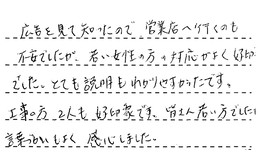 広告を見て知ったので 営業店へ行くのも
不安でしたが、若い女性の方の対応がよく好印
でした。とても説明もわかりやすかったです。
工事の方、2人も好印象です。 1人若い方でした
言葉づかいもよく 感心しました。